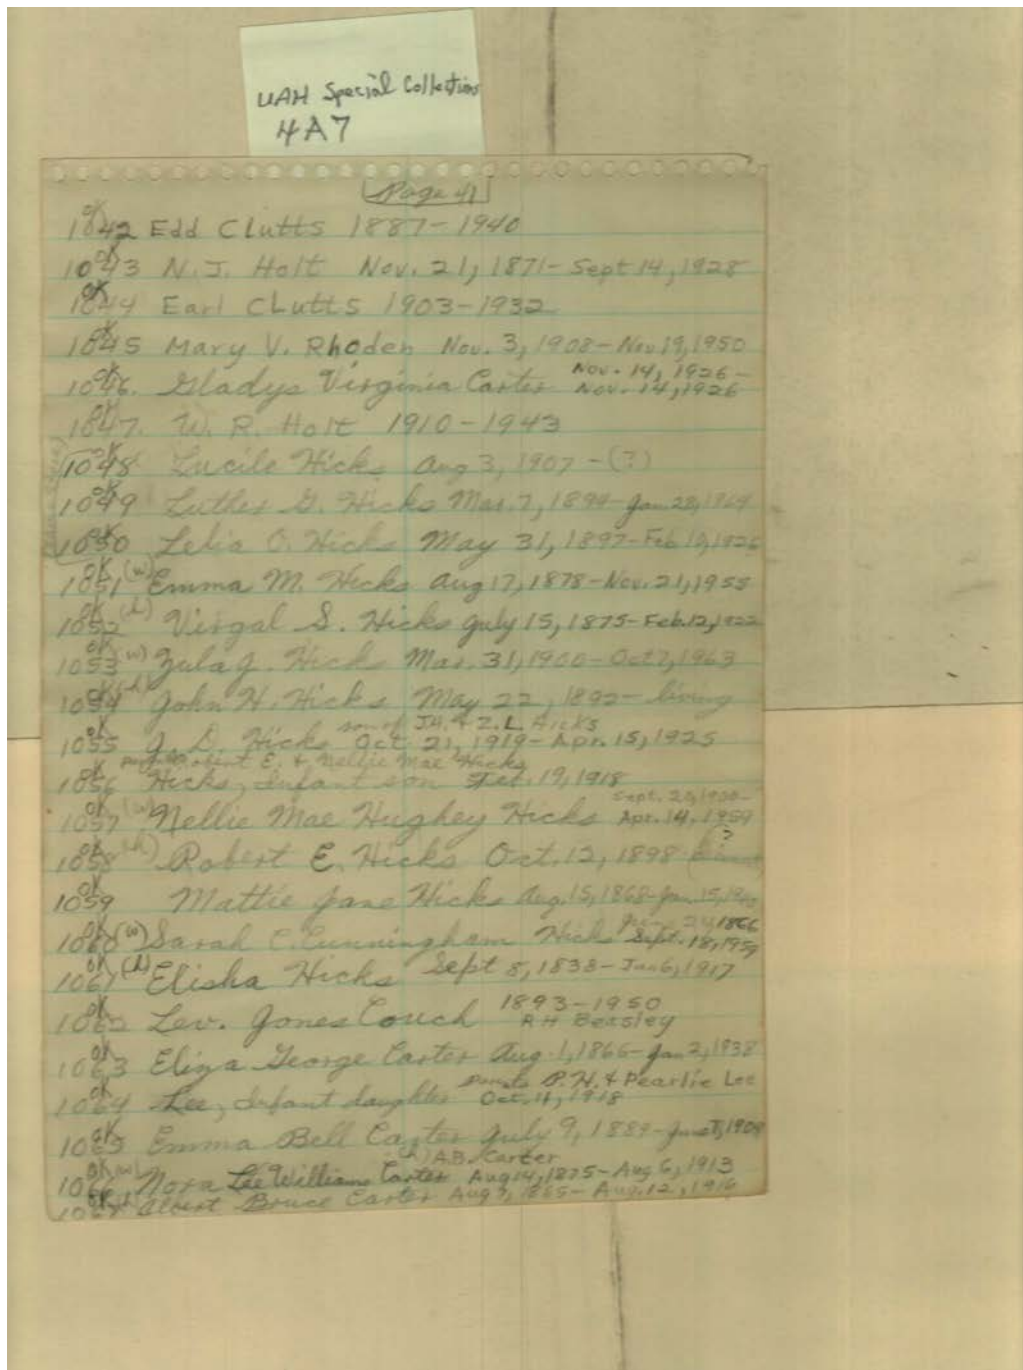 UAH Special Collections
4A7
Page 41
OK
1042 Edd Clutts 1887-1940
OK
1043 N.J. Holt Nov. 21, 1871- Sept 14, 1928
OK
1044 Earl Clutts 1903-1932
OK
1045 Mary V. Rhoden Nov. 3, 1908- Nov 19, 1950
Nov. 14, 1926-
OK
1046. Gladys Virginia Carter Nov. 14, 1926
OK
1047. W. R. Holt 1910-1943
OK
1048 Lucile Hicks Aug 3, 1907-(?)
OK
1049 Luther G. Hicks Mar. 7, 1894- Jan. 28, 1964
OK
1050 Lelia O. Hicks May 31, 1897- Feb
OK
1051 (w) Emma M. Hicks Aug 17, 1878- Nov. 21, 1955
OK
1052 (h) Virgal S. Hicks July 15, 1875- Feb. 12, 1922
OK
1053 (w) Zula J. Hicks Mar. 31, 1900- Oct 7, 1963
OK
1054 (h) John H. Hicks May 22, 1892- living
son of J.H. & Z.L. Hicks
OK
1055 J. D. Hicks Oct. 21, 1919- Apr. 15, 1925
parents Robert E. & Nellie Mae Hicks
OK
1056 Hicks, Infant son Oct. 19, 1918
Sept. 20, 1900-
OK
1057 (w) Nellie Mae Hughey Hicks Apr. 14, 1959
?
OK
1058 (h) Robert E. Hicks Oct. 12, 1898-
OK
1059 Mattie Jane Hicks Aug. 15, 1868- Jan. 15,
June 24, 1866
OK
1060 (w) Sarah C. Cunningham Hicks Sept. 18, 1959
OK
1061 (h) Elisha Hicks Sept 8, 1838- Jan 6, 1917
OK
1062 Lev. Jones Couch 1893-1950
R H Beasley
OK
1063 Eliza George Carter Aug. 1, 1866- Jan 2, 1938
parents P.H. & Pearlie Lee
OK
1064 Lee, Infant daughter Oct. 11, 1918
OK
1065 Emma Bell Carter July 9, 1889- June 1908
(h) A.B. Carter
OK (w)
1066 Nora Lee Williams Carter Aug 14, 1875- Aug 6, 1913
OK (h)
1067 Albert Bruce Carter Aug 7, 1865- Aug. 12, 1916